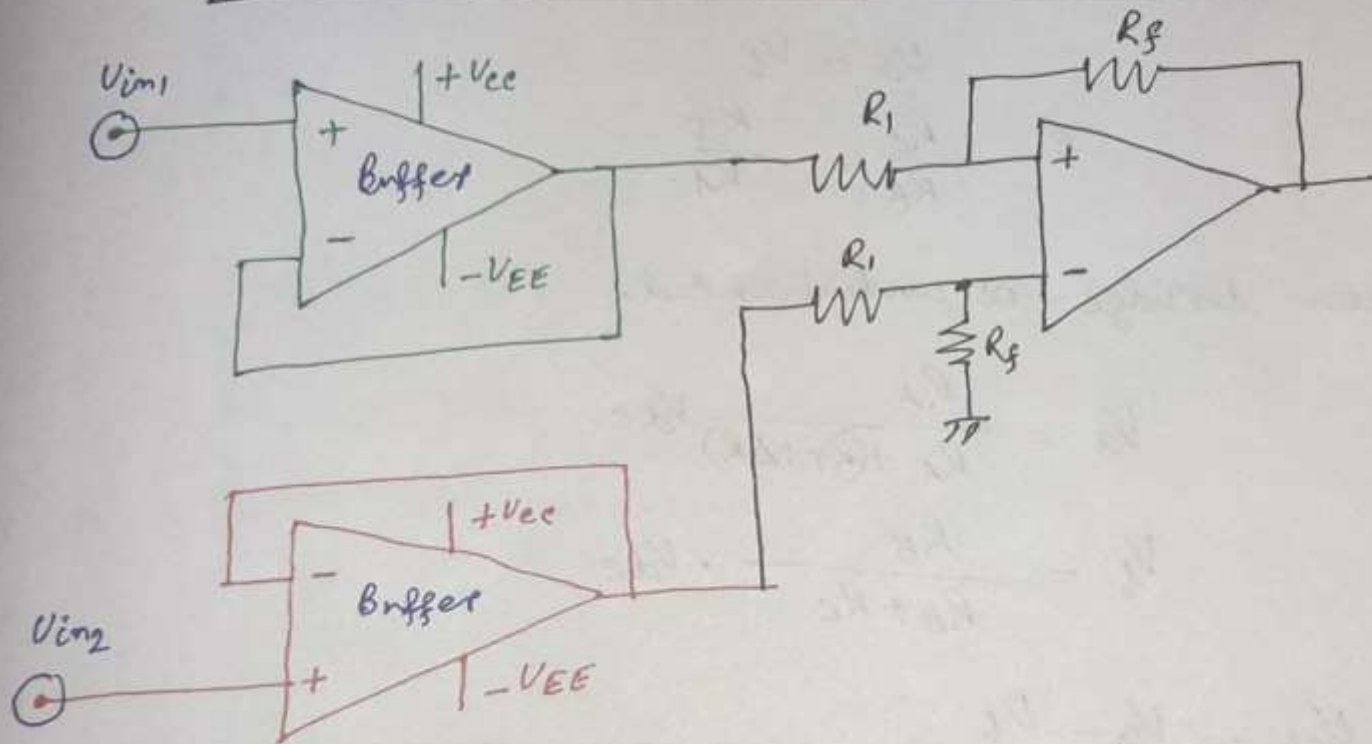 Vin1
+Vcc
+
Buffer
-
-VEE
R1
Rf
+
-
R1
Rf
+Vcc
-
Buffer
+
-VEE
Vin2